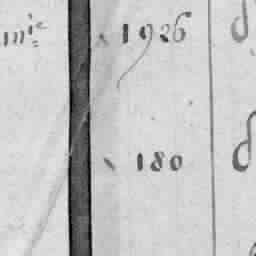 mie 1926
180